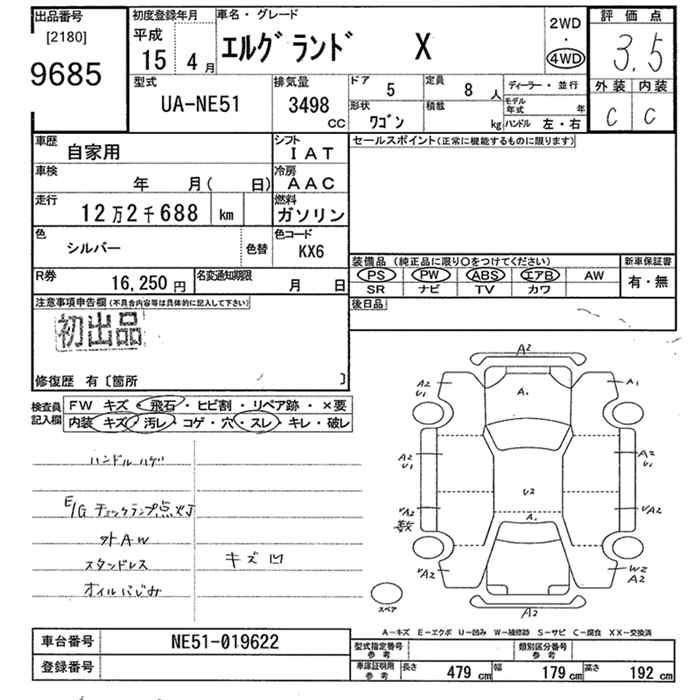 出品番号
[2180]
9685
初度登録年月
平成
15 4月
車名・グレード
エルグランド X
2WD
・
4WD
評価点
3.5
外装 内装
C C
型式
UA-NE51
排気量
3498
CC
ドア
5
定員
8人
形状
ワゴン
積載
kg
ディーラー・並行
モデル年式 年
ハンドル 左・右
車歴
自家用
シフト
IAT
車検
年 月( 日)
冷房
AAC
走行
12万2千688 km
燃料
ガソリン
色
シルバー
色替
色コード
KX6
R券
16,250円
名変通知期限
月 日
セールスポイント(正常に機能するものに限ります)
装備品(純正品に限り○をつけてください)
PS PW ABS エアB AW
SR ナビ TV カワ
新車保証書
有・無
後日品
注意事項申告欄(不具合内容等は具体的に記入して下さい)
初出品
修復歴 有〔箇所 〕
検査員記入欄
FW キズ・飛石・ヒビ割・リペア跡・×要
内装 キズ・汚レ・コゲ・穴・スレ・キレ・破レ
ハンドルハゲ
E/G チェックランプ点灯
外AW
スタンドレス
オイルにじみ
キズ凹
A2
A2
U1
A.
A1
A2
U1
A2
U1
U2
UA2
UA2
A.
A2
W2
A2
A2
スペア
A-キズ E-エクボ U-凹み W-補修跡 S-サビ C-腐食 XX-交換済
車台番号
NE51-019622
登録番号
型式指定番号
参考
類別区分番号
参考
車庫証明用
参考
長さ 479 cm
幅 179 cm
高さ 192 cm